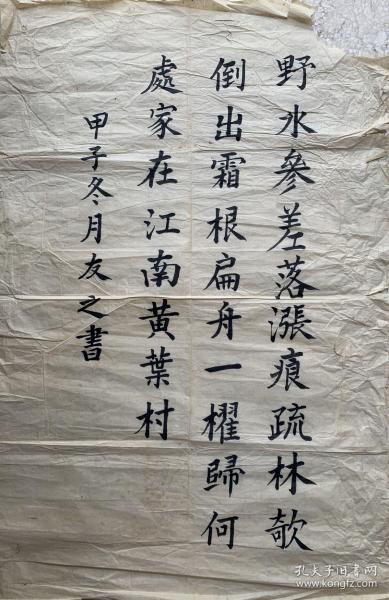 野水參差落漲痕疏林欹
倒出霜根扁舟一櫂歸何
處家在江南黃葉村
甲子冬月友之書
孔夫子旧书网